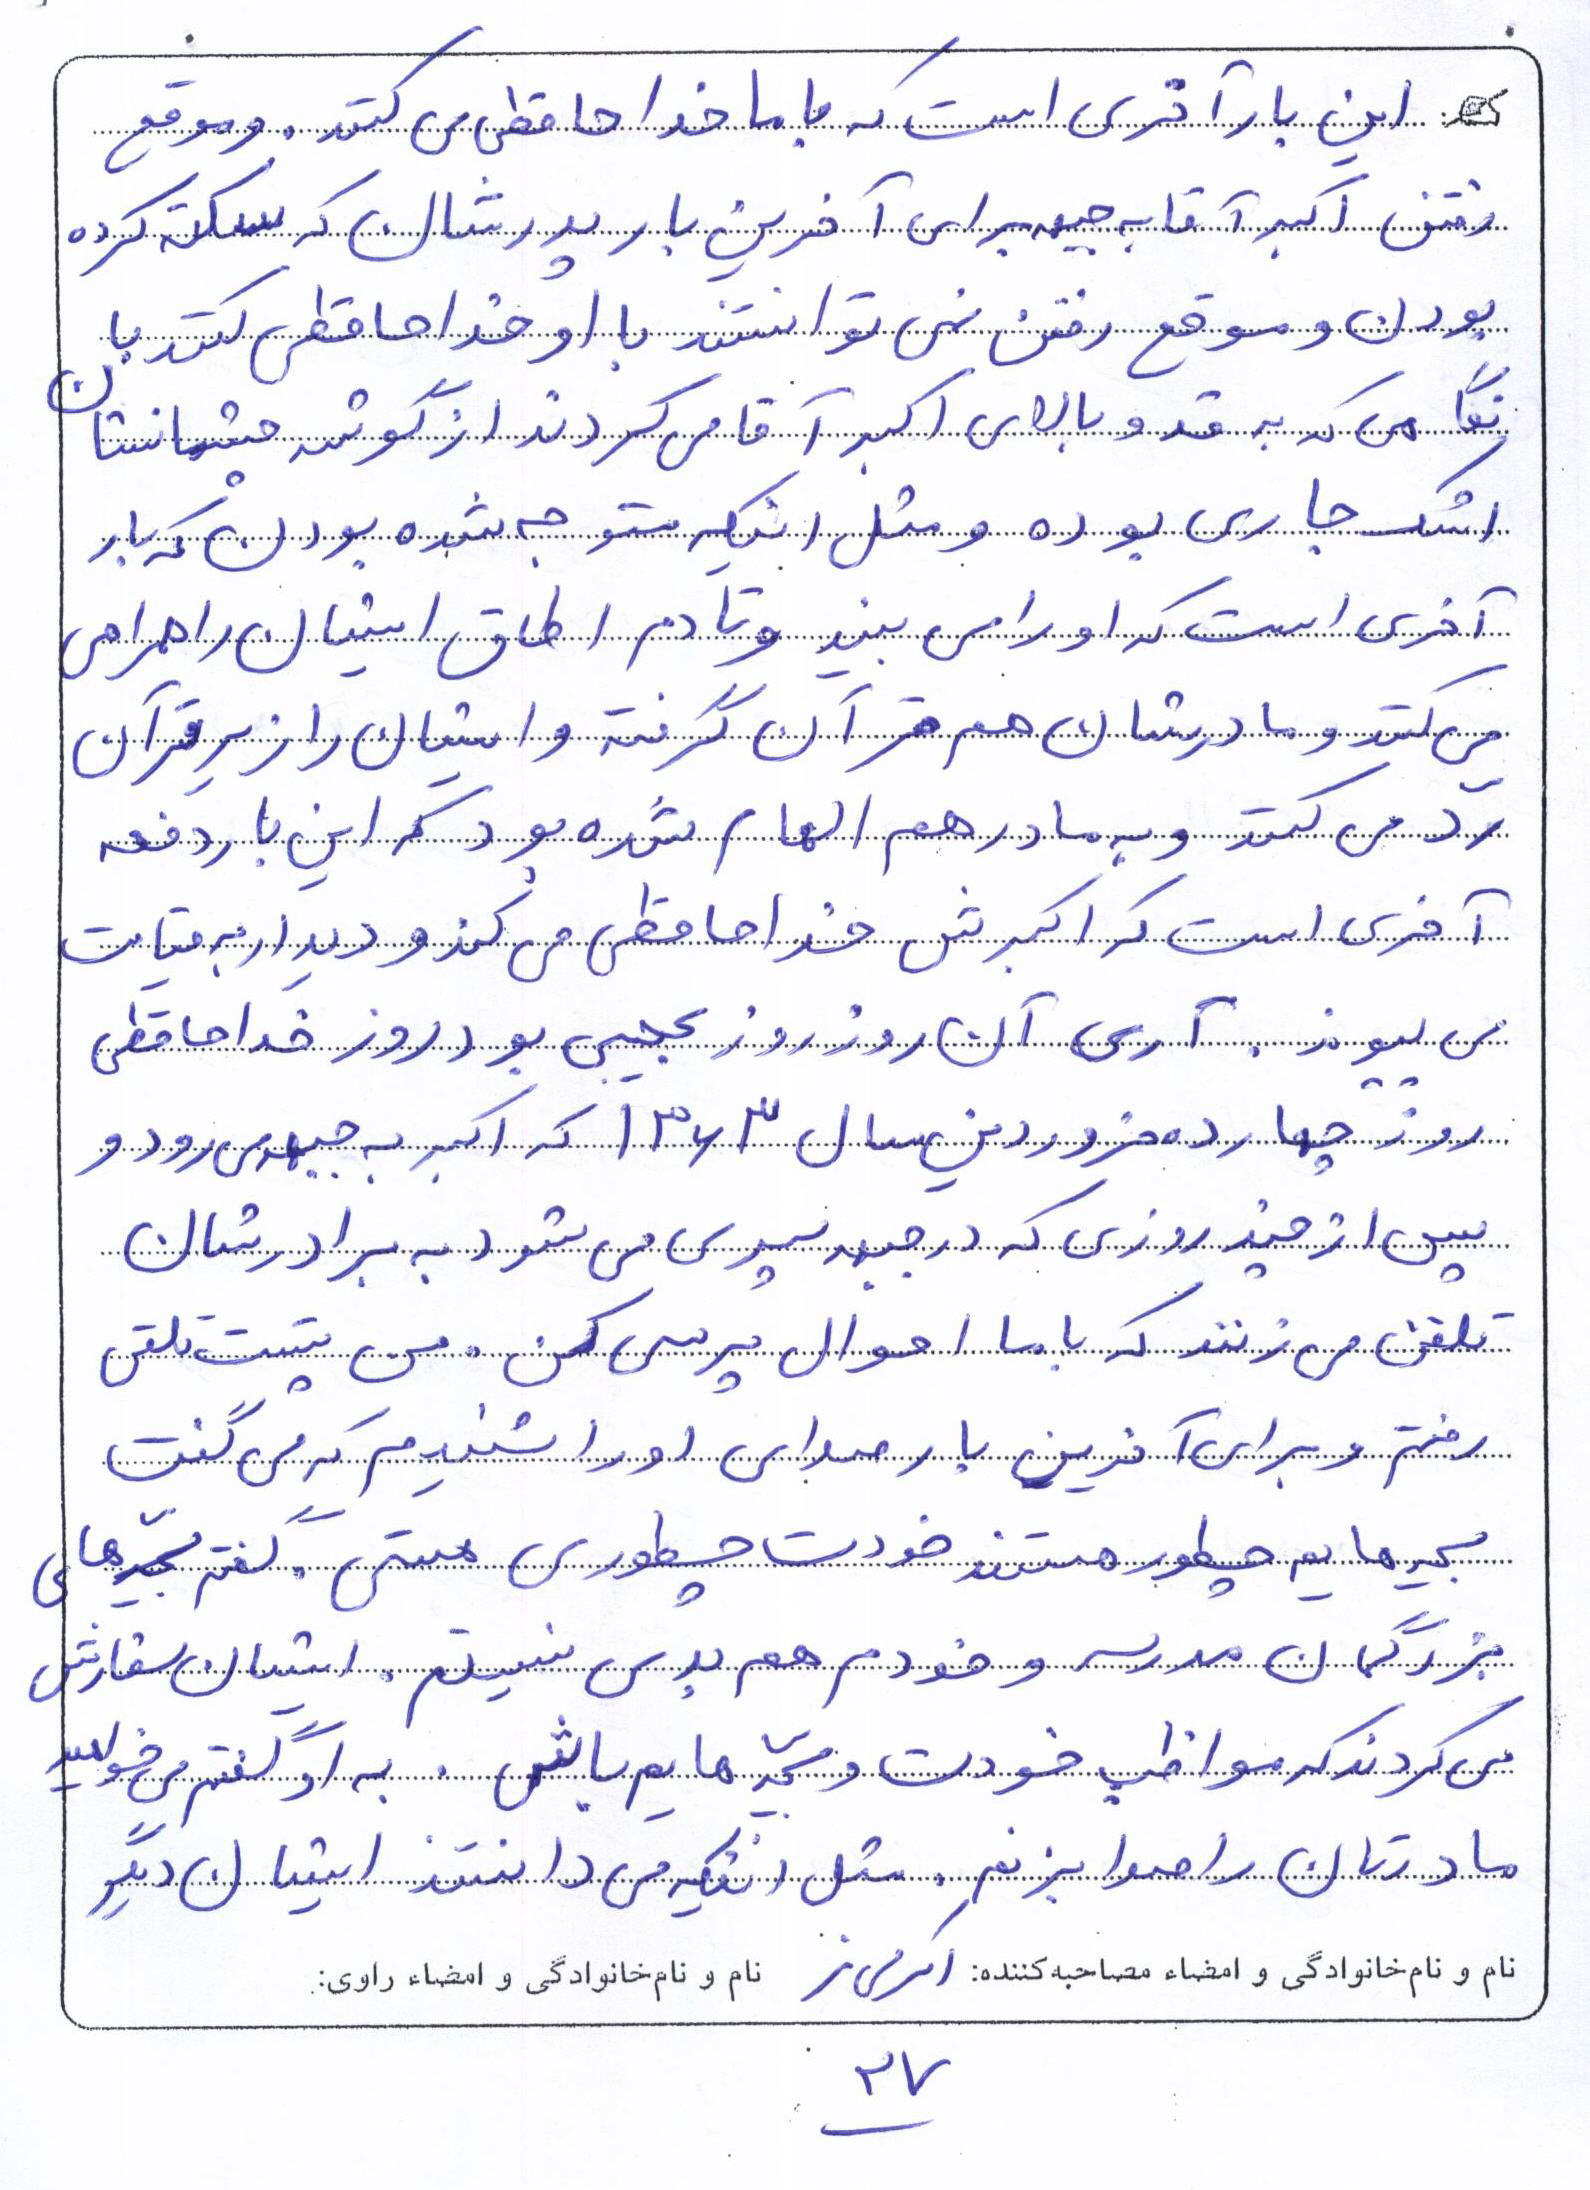 این بار آخری است که با ما خداحافظی می کنند. و موقع
رفتن اکبر آقا به جبهه برای آخرین بار پدرشان که سکته کرده
بودن و موقع رفتن نمی توانستند با او خداحافظی کنند با
نگاهی که به قد و بالای اکبر آقا می کردند از گوشه چشمانشان
اشک جاری بوده و مثل اینکه متوجه شده بودن که بار
آخری است که او را می بیند و تا دم اطاق ایشان را همراهی
می کنند و مادرشان هم قرآن گرفته و ایشان را از زیر قرآن
رد می کنند و به مادر هم الهام شده بود که این بار دفعه
آخری است که اکبرش خداحافظی می کند و دیدار به قیامت
می پیوند. آری آن روز روز عجیبی بود روز خداحافظی
روز چهارده فروردین سال ۱۳۶۳ که اکبر به جبهه می رود و
پس از چند روزی که در جبهه سپری می شود به برادرشان
تلفن می زنند که با ما احوال پرسی کن. من پشت تلفن
رفتم و برای آخرین بار صدای او را شنیدم که می گفت
بچه هایم چطور هستند خودت چطوری هستی. گفتم بچه های
بزرگمان مدرسه و خودم هم بدس نیستم. ایشان سفارش
می کردند که مواظب خودت و بچه هایم باش. به او گفتم می خواهید
مادرتان را صدا بزنم. مثل اینکه می دانستند ایشان دیگر
نام و نام‌خانوادگی و امضاء مصاحبه‌کننده: نام و نام‌خانوادگی و امضاء راوی:
۲۷